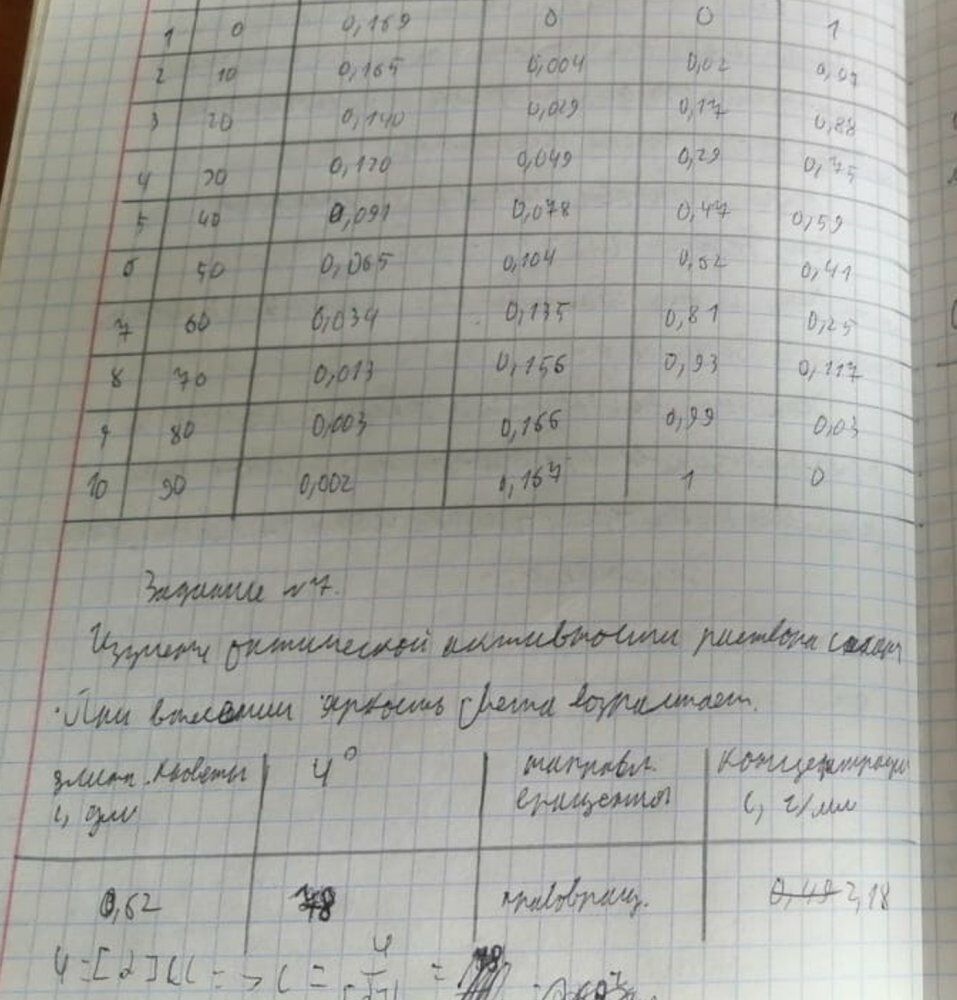 1 0 0,169 0 0 1
2 10 0,165 0,004 0,02
3 20 0,140 0,029 0,17 0,88
4 30 0,120 0,049 0,29 0,75
5 40 0,091 0,078 0,47 0,59
6 50 0,065 0,104 0,62 0,41
7 60 0,034 0,135 0,81 0,25
8 70 0,013 0,156 0,93 0,117
9 80 0,003 0,166 0,99 0,03
10 90 0,002 0,167 1 0
Задание №7.
Изучение оптической активности раствора сахара
При яркость света возрастает.
длина кюветы φ° направл. концентрация
l, дм вращения C, г/мл
0,62 78 правовращ. 0,49 2,18
φ = [α] l C => C = φ =